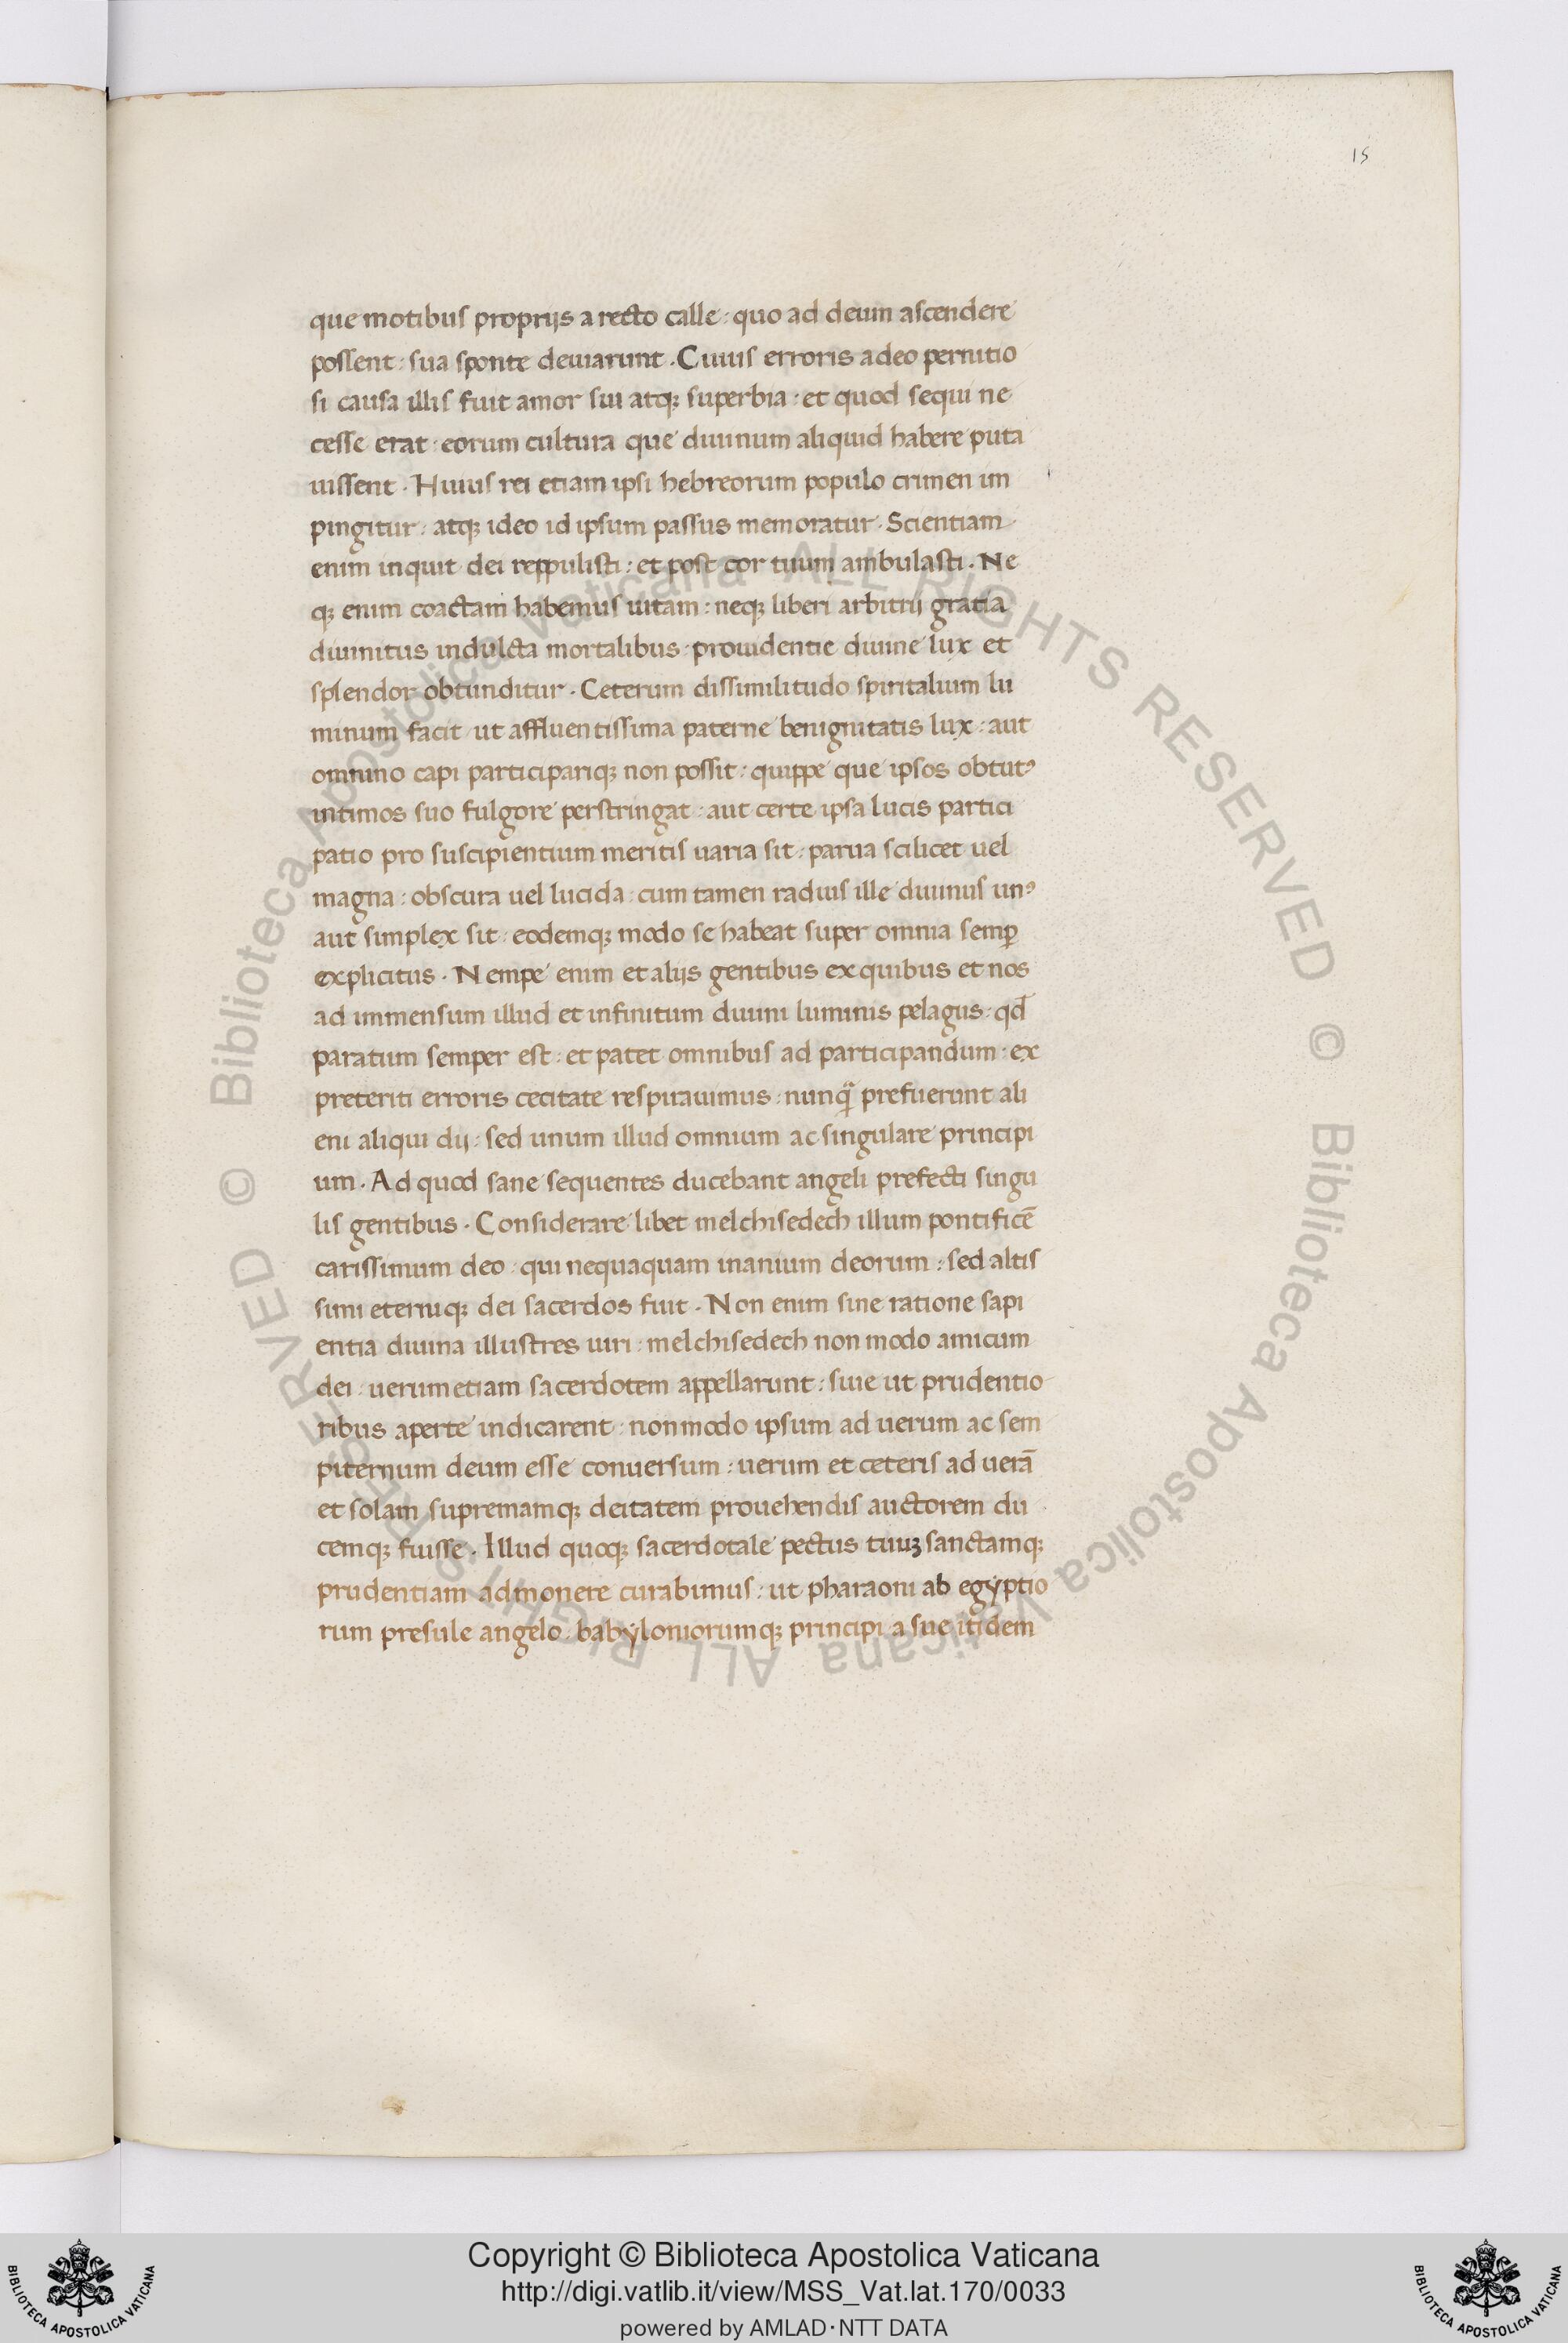 15
que motibus proprijs a recto calle : quo ad deum ascendere
possent : sua sponte deuiarunt . Cuius erroris adeo pernitio
si causa illis fuit amor sui atq; superbia : et quod sequi ne
cesse erat : eorum cultura que diuinum aliquid habere puta
uissent . Huius rei etiam ipsi hebreorum populo crimen im
pingitur : atq; ideo id ipsum passus memoratur . Scientiam
enim inquit dei reppulisti : et post cor tuum ambulasti . Ne
q; enim coactam habemus uitam : neq; liberi arbitrij gratia
diuinitus indulcta mortalibus : prouidentie diuine lux et
splendor obtunditur . Ceterum dissimilitudo spiritalium lu
minum facit ut affluentissima paterne benignitatis lux : aut
omnino capi participariq; non possit : quippe que ipsos obtutꝰ
intimos suo fulgore perstringat : aut certe ipsa lucis partici
patio pro suscipientium meritis uaria sit : parua scilicet uel
magna : obscura uel lucida : cum tamen radius ille diuinus unꝰ
aut simplex sit : eodemq; modo se habeat super omnia semꝑ
explicitus . Nempe enim et alijs gentibus ex quibus et nos
ad immensum illud et infinitum diuini luminis pelagus : qd̄
paratum semper est : et patet omnibus ad participandum : ex
preteriti erroris cecitate respirauimus : nunq̃ prefuerunt ali
eni aliqui dij : sed unum illud omnium ac singulare principi
um . Ad quod sane sequentes ducebant angeli prefecti singu
lis gentibus . Considerare libet melchisedech illum pontificē
carissimum deo : qui nequaquam inanium deorum : sed altis
simi eterniq; dei sacerdos fuit . Non enim sine ratione sapi
entia diuina illustres uiri : melchisedech non modo amicum
dei : uerumetiam sacerdotem appellarunt : siue ut prudentio
ribus aperte indicarent : non modo ipsum ad uerum ac sem
piternum deum esse conuersum : uerum et ceteris ad uerā
et solam supremamq; deitatem prouehendis auctorem du
cemq; fuisse . Illud quoq; sacerdotale pectus tuuꝫ sanctamq;
prudentiam admonere curabimus : ut pharaoni ab egyptio
rum presule angelo : babyloniorumq; principi a sue itidem
© Biblioteca Apostolica Vaticana ALL RIGHTS RESERVED
© Biblioteca Apostolica Vaticana ALL RIGHTS RESERVED
Copyright © Biblioteca Apostolica Vaticana
http://digi.vatlib.it/view/MSS_Vat.lat.170/0033
powered by AMLAD·NTT DATA
BIBLIOTECA APOSTOLICA VATICANA
BIBLIOTECA APOSTOLICA VATICANA